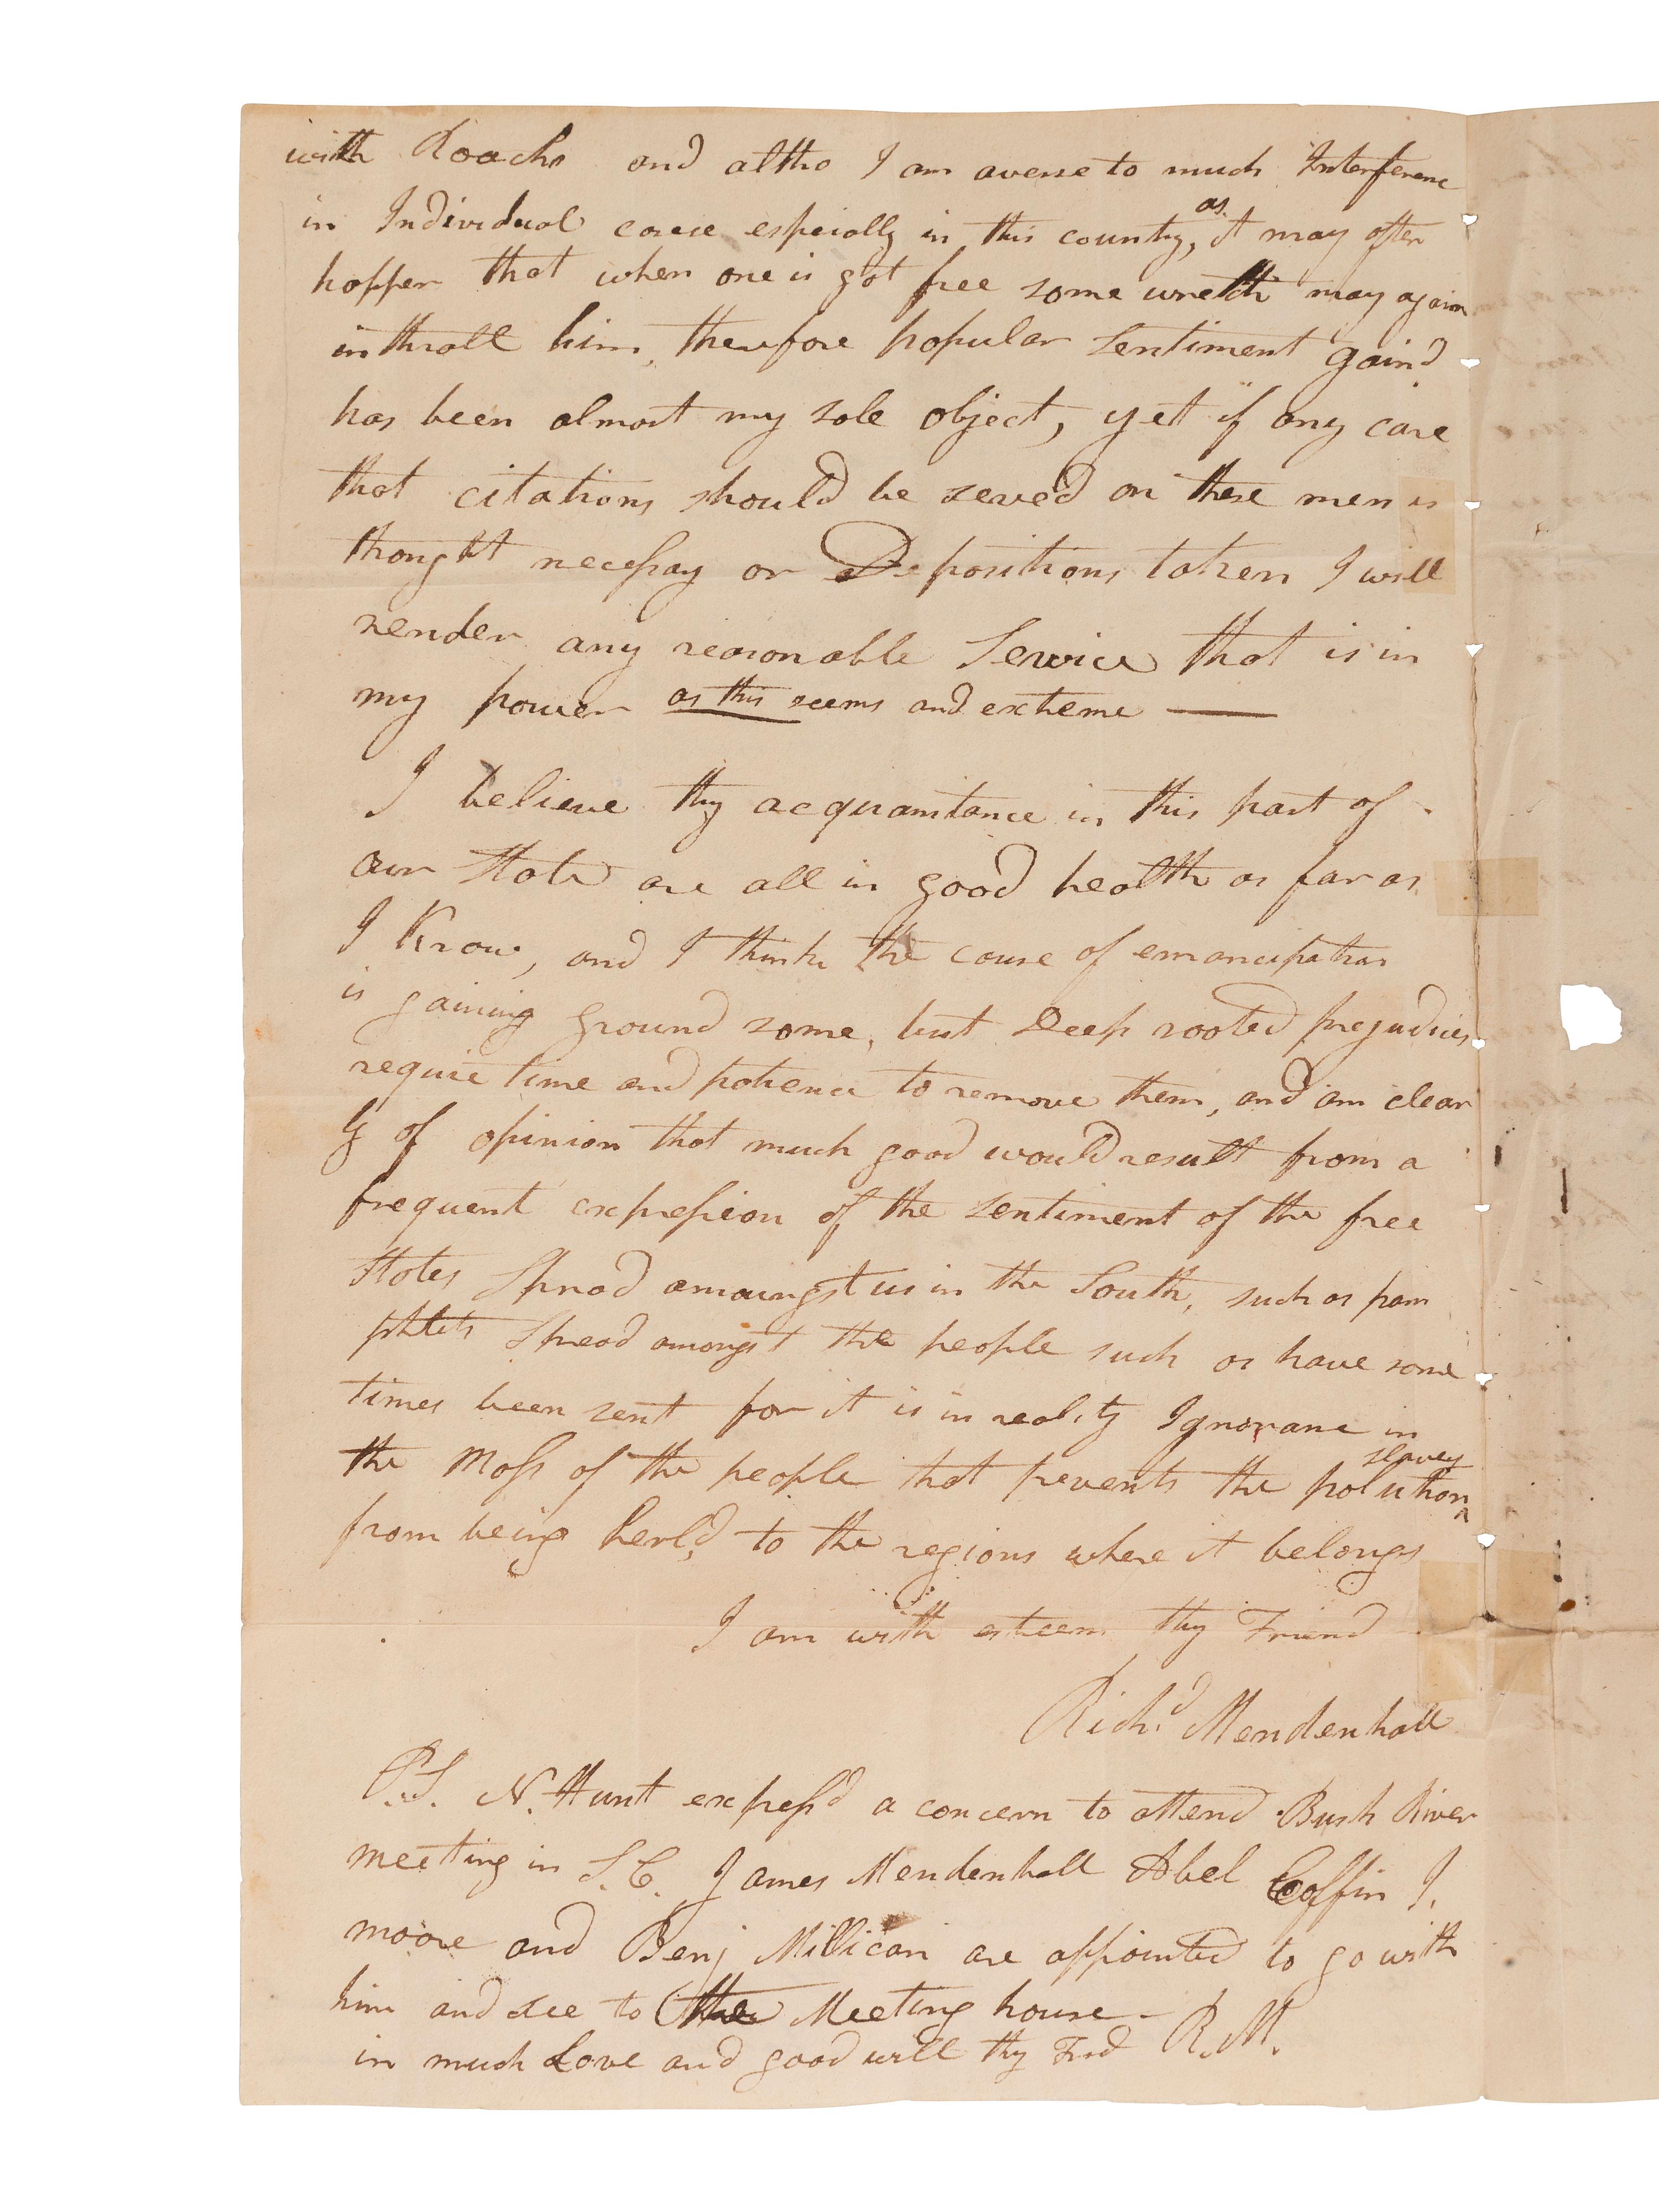 with Roachs and altho I am averse to much Interferenc
in Individual cases espicially in this country, as it may often
happen that when one is got free some wretch may again
inthrall him, therefore popular sentiment gain'd
has been almost my sole object, yet if any case
that citations should be served on these men is
thought necessay or Depositions taken I will
render any reasonable Service that is in
my power as this seems and extreme —
I believe thy acquaintance in this part of
our State are all in good health as far as
I Know, and I think the cause of emancipation
is gaining ground some, but Deep rooted prejudices
require time and patience to remove them, and am clear
ly of opinion that much good would result from a
frequent expression of the sentiment of the free
States Spread amoungst us in the South, such as pam
phlets Spread amongst the people such as have some
times been sent for it is in reality Ignorance in
the Mass of the people that prevents the polution slavey
from being herld, to the regions where it belongs
I am with esteem thy Friend
Richd Mendenhall
P.S. N. Hunt express'd a concern to attend Bush River
meeting in S.C. James Mendenhall Abel Coffin J.
moore and Benj Millican are appointed to go with
him and see to the Meeting house –
in much Love and good will thy Frd R.M.